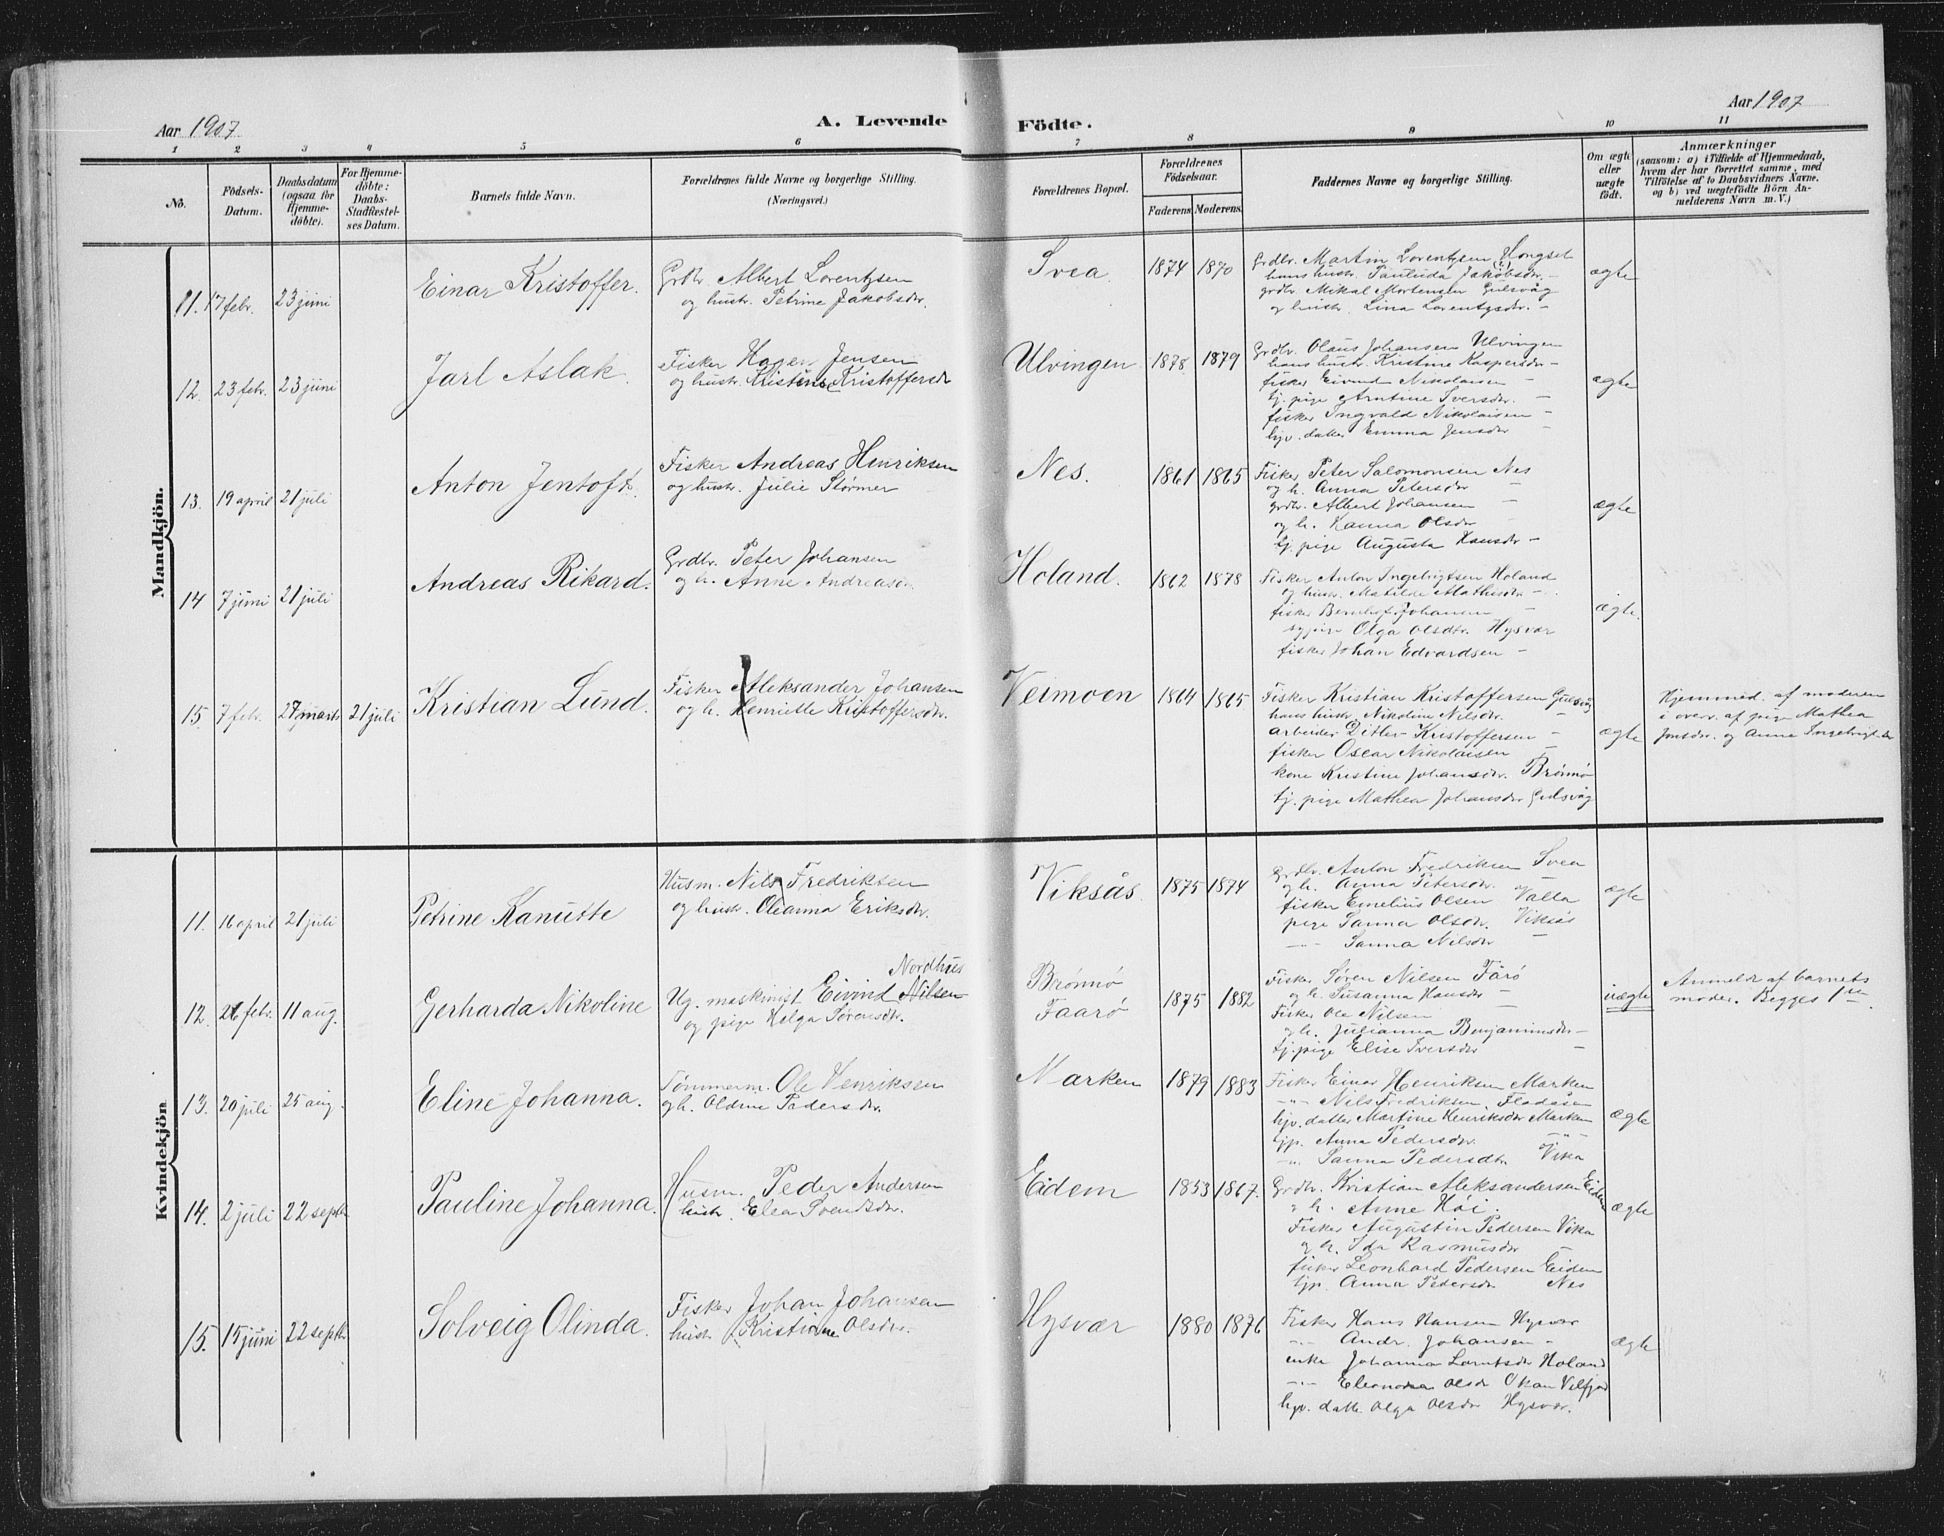 Aar 1907
A. Levende Födte.
Aar 1907
1 2 3 4 5 6 7 8 9 10 11
No.
Födsels-Datum.
Daabsdatum (ogsaa for Hjemme-døbte).
For Hjemme-døbte: Daabs-Stadfæstel-ses Datum.
Barnets fulde Navn.
Forældrenes fulde Navne og borgerlige Stilling.
(Næringsvei.)
Forældrenes Bopæl.
Forældrenes Födselsaar.
Faderens Moderens.
Faddernes Navne og borgerlige Stilling.
Om ægte eller uægte födt.
Anmærkninger
(saasom: a) i Tilfælde af Hjemmedaab,
hvem der har forrettet samme, med
Tilföielse af to Daabsvidners Navne.
og b) ved uægtefödte Börn An-
melderens Navn m.V.)
Mandkjön.
11. 17 febr. 23 juni Einar Kristoffer. Grdbr. Albert Lorentzen
og hustr. Petrine Jakobsdr.
Svea 1874 1870
Grdbr. Martin Lorentzen Hongset
hans hustr. Paulida Jakobsdr. -
grdbr. Mikal Mortensen Gulsvåg
og hustr. Lina Lorentzsdr. -
ægte
12. 23 febr. 23 juni Jarl Aslak. Fisker Hager Jensen
og hustr. Kristine Kristoffersdr
Ulvingen 1878 1879
Grdbr. Olaus Johansen Ulvingen
hans hustr. Kristine Kaspersdr -
fisker Eivind Nikolaisen -
tj. pige Arntine Iversdr. -
fisker Ingvald Nikolaisen -
hjv. datter Emma Jensdr -
ægte
13. 19 april 21 juli Anton Jentoft. Fisker Andreas Henriksen
og hustr. Julie Størmer
Nes. 1861 1865
Fisker Peter Salomonsen Nes
og h. Anna Petersdr -
grdbr. Albert Johansen -
og h. Hanna Olsdr -
tj. pige Augusta Hansdr -
ægte
14 7 juni 21 juli Andreas Rikard. Grdbr. Peter Johansen
og h. Anne Andreasdr.
Holand. 1862 1878
Fisker Anton Ingebrigtsen Holand
og hustr. Matilde Mathisdr -
fisker Bernhof Johansen -
sypige Olga Olsdtr. Hysvær
fisker Johan Edvardsen -
ægte.
15. 7 febr. 27 marts 21 juli Kristian Lund. Fisker Aleksander Johansen
og h. Henriette Kristoffersdr.
Veimoen 1864 1865
Fisker Kristian Kristoffersen Gulsvåg
hans hustr. Nikoline Nilsdr. -
arbeider Ditlev Kristoffersen -
fisker Oscar Nikolaisen -
kone Kristine Johansdr. Brønnø
tj. pige Mathea Johansdr Gulsvåg
ægte
Hjemmed. af moderen
i overv. af pige Mathea
Jonsdr. og Anna Ingebrigtsdr
Kvindekjön
11. 16 april 21 juli Petrine Kanutte Husm. Nils Fredriksen
og hustr. Oleanna Eriksdr.
Viksås 1875 1874
Grdbr. Anton Fredriksen Svea
og h. Anna Petersdr.
fisker Emelius Olsen Valla
pige Sanna Olsdr. Viksås
-"- Sanna Nilsdr -
ægte
12. 26 febr. 11 aug. Gerharda Nikoline Ug. maskinist Eivind Nilsen Nordhus
og pige Helga Sørensdr.
Brønnø
Faarø 1875 1882
Fisker Søren Nilsen Fårø
og h. Susanna Hansdr -
Fisker Ole Nilsen
og h. Julianna Benjaminsdr -
tj. pige Elise Iversdr -
uægte
Anmeldt af barnets
moder. Begges 1ste
13. 20 juli 25 aug. Eline Johanna. Tømmerm. Ole Henriksen
og h. Oldine Pedersdr.
Marken 1879 1883
Fisker Einar Henriksen Marken
-"- Nils Fredriksen Fladåsen
hjv. datter Martine Henriksdr Marken
tjp. Anna Pedersdr. -"-
-"- Sanna Pedersdtr. Vika
ægte
14. 2 juli 22 septbr Pauline Johanna. Husm. Peder Andersen
hustr. Elea Svendsdr.
Eidem 1853 1867.
Grdbr. Kristian Aleksandersen Eidem
og h. Anne Høi.
Fisker Augustin Pedersen Vika
og h. Ida Rasmusdr -
fisker Leonhard Pedersen Eidem
tjp. Anna Pedersdr Nes
ægte
15. 15 juni 22 septbr Solveig Olinda. Fisker Johan Johansen
hustr. Kristianne Olsdr.
Hysvær 1880 1876
Fisker Hans Hansen Hysvær
-"- Andr. Johansen -
enke Johanna Lorntsdr Holand
-"- Eleonora Olsdr Okan Velfjord
hjv. datter Olga Olsdr Hysvær.
ægte